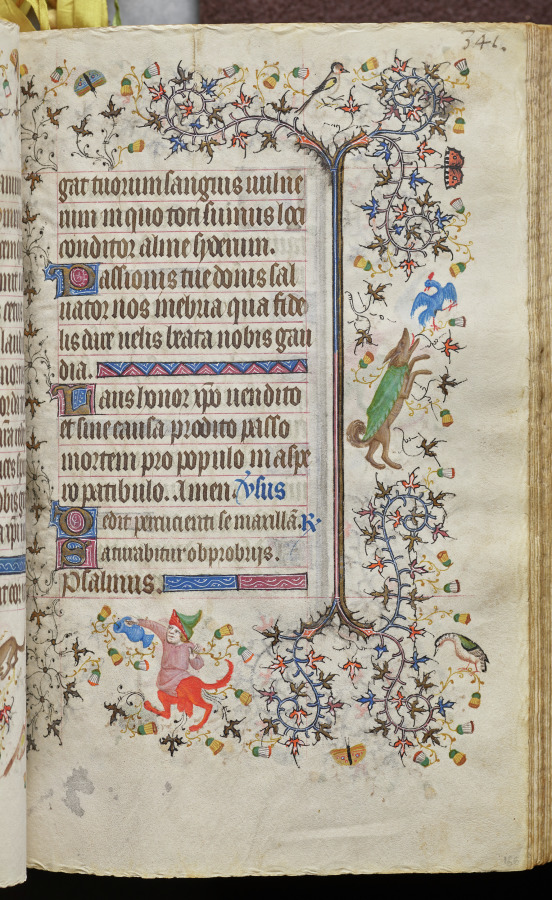 346.
gat tuorum sanguis uulne
rum in quo toti sumus loti
conditor alme syderum.
Passionis tue donis sal
uator nos inebria qua fide
lis dare uelis beata nobis gau
dia.
Laus honor xpo uendito
et sine causa prodito passo
mortem pro populo in aspe
ro patibulo. Amen. vsus
Dedit percucienti se maxillā. R.
Saturabitur obprobriis.
Psalmus.